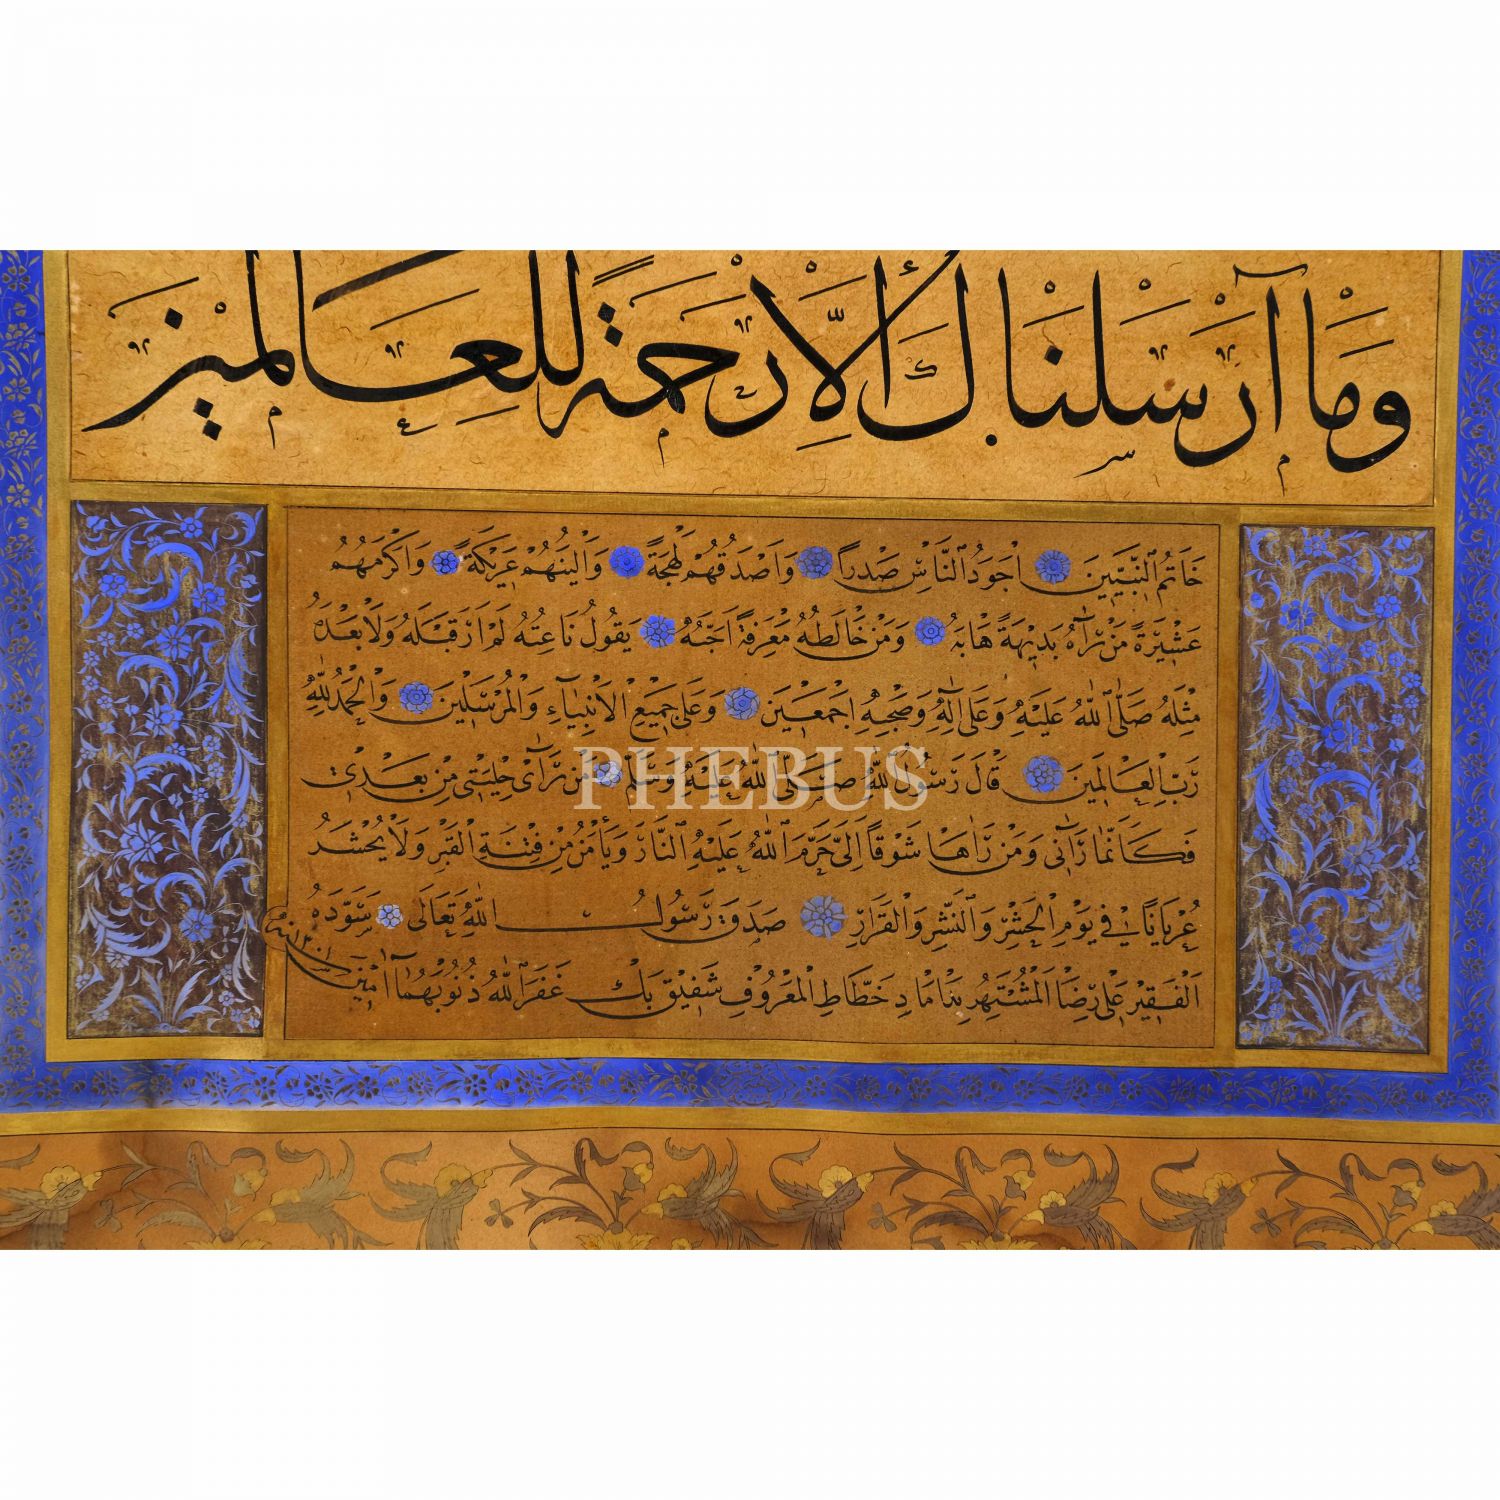 وَمَا أَرْسَلْنَاكَ إِلَّا رَحْمَةً لِلْعَالَمِينَ
خَاتَمُ النَّبِيِّينَ أَجْوَدُ النَّاسِ صَدْراً وَأَصْدَقُهُمْ لَهْجَةً وَأَلْيَنُهُمْ عَرِيكَةً وَأَكْرَمُهُمْ
عَشِيرَةً مَنْ رَآهُ بَدِيهَةً هَابَهُ وَمَنْ خَالَطَهُ مَعْرِفَةً أَحَبَّهُ يَقُولُ نَاعِتُهُ لَمْ أَرَ قَبْلَهُ وَلَا بَعْدَهُ
مِثْلَهُ صَلَّى اللهُ عَلَيْهِ وَعَلَى آلِهِ وَصَحْبِهِ أَجْمَعِينَ وَعَلَى جَمِيعِ الْأَنْبِيَاءِ وَالْمُرْسَلِينَ وَالْحَمْدُ لِلّٰهِ
رَبِّ الْعَالَمِينَ قَالَ رَسُولُ اللهِ صَلَّى اللهُ عَلَيْهِ وَسَلَّمَ مَنْ رَآى حِلْيَتِى مِنْ بَعْدِى
PHEBUS
فَكَأَنَّمَا رَآنِى وَمَنْ رَآهَا شَوْقاً إِلَىَّ حَرَّمَ اللهُ عَلَيْهِ النَّارَ وَيَأْمَنُ مِنْ فِتْنَةِ الْقَبْرِ وَلَا يُحْشَرُ
عُرْيَاناً فِي يَوْمِ الْحَشْرِ وَالنَّشْرِ وَالْقَرَارِ صَدَقَ رَسُولُ اللهِ تَعَالَى سَوَّدَهُ
الْفَقِيرُ عَلِى رِضَا الْمُشْتَهِرُ بِنَامَادِ خَطَّاطِ الْمَعْرُوفِ شَفِيقْ بَكْ غَفَرَ اللهُ ذُنُوبَهُمَا آمِينَ